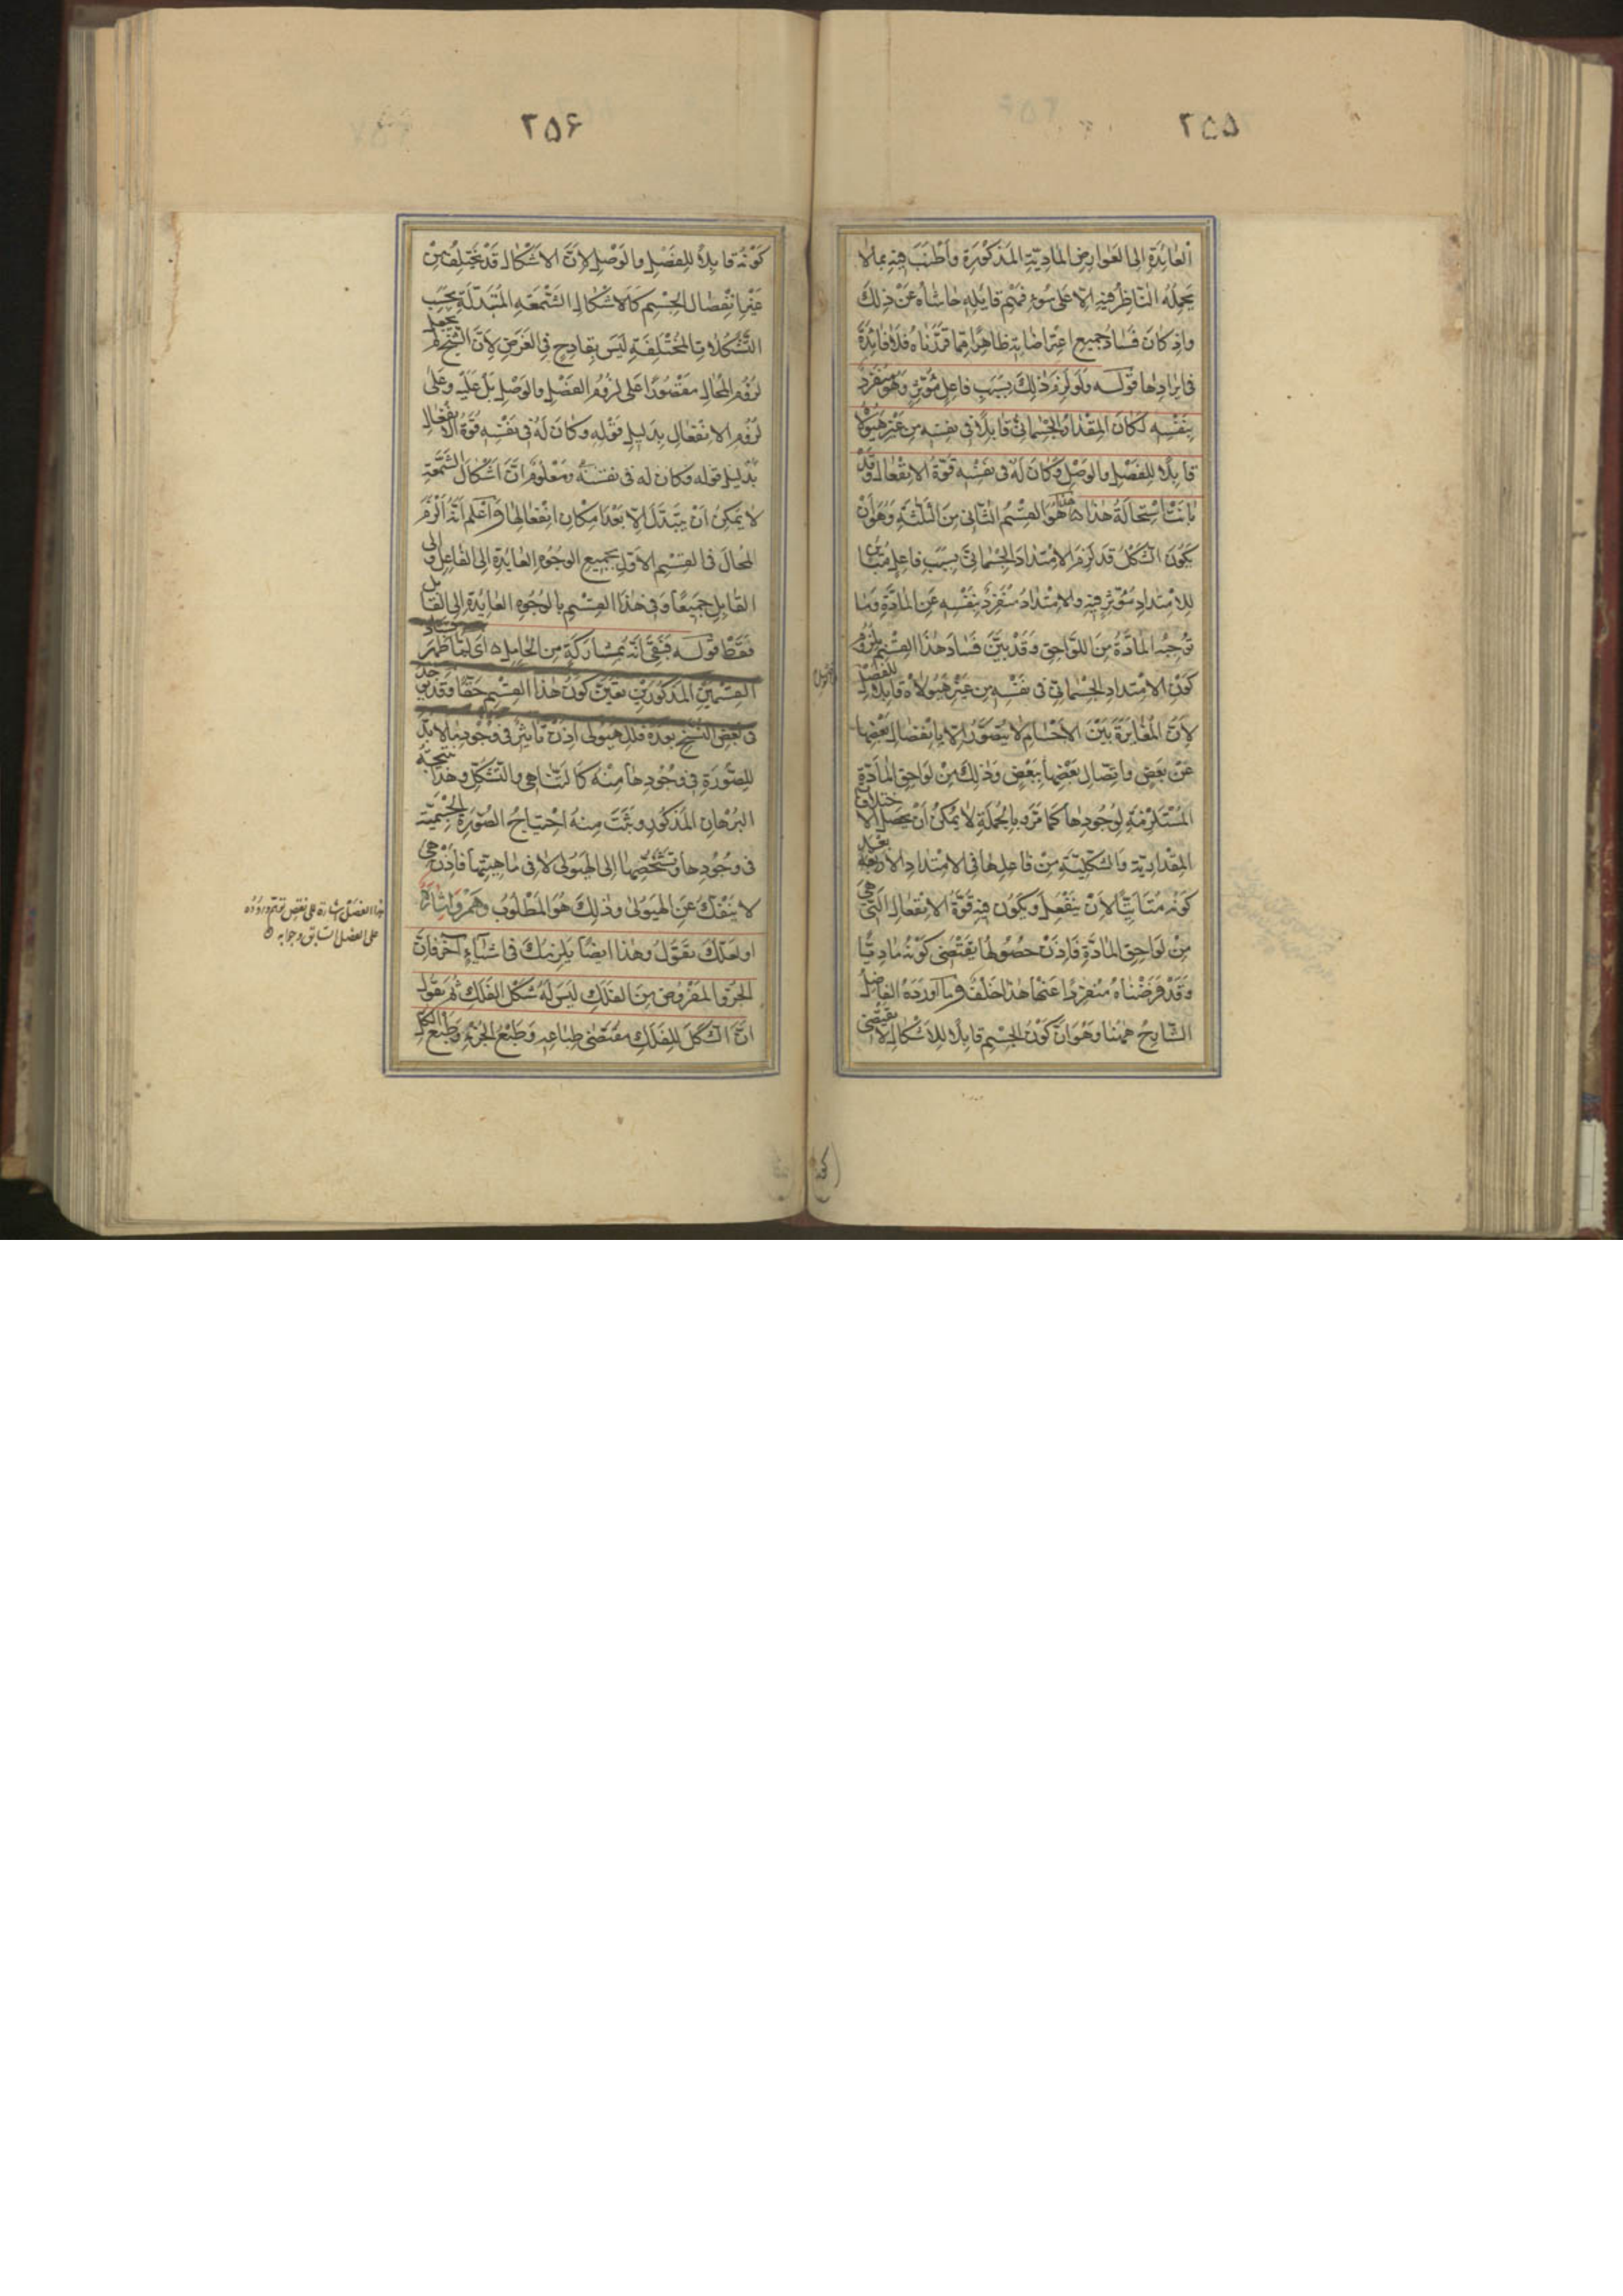 ٢٥٥
العائدة الى العوارض المادية المذكورة واطنب فيه بما لا
يحمله الناظر فيه الا على سوء فهم قائله حاشاه عن ذلك
واذ كان فساد جميع اعتراضاته ظاهرا مما قدمناه فلا فائدة
في ايرادها قوله ولو لزم ذلك بسبب فاعل مؤثر وهو منفرد
بنفسه لكان المقدار الجسماني قابلا في نفسه من غير هيولا
قابلا للفصل والوصل وكان له في نفسه قوة الانفعال وقد
بانت استحالة هذا ه هذا هو القسم الثاني من الثلثة وهو ان
يكون الشكل قد لزم الامتداد الجسماني بسبب فاعل مباين
للامتداد مؤثر فيه والامتداد منفرد بنفسه عن المادة وما
توجبه المادة من اللواحق وقد بين فساد هذا القسم بلزوم
كون الامتداد الجسماني في نفسه من غير هيولاه قابلا للفصل
لان المغايرة بين الاجسام لا يتصور الا بانفصال بعضها
عن بعض واتصال بعضها ببعض وذلك من لواحق المادة
المستلزمة لوجودها كما مر وبالجملة لا يمكن ان يحصل الاختلافات
المقدارية والشكلية من فاعلها في الامتداد الا بعد
كونه متاتيا لان ينفعل ويكون فيه قوة الانفعال التي هي
من لواحق المادة فاذن حصولها يقتضي كونه ماديا
وقد فرضناه منفردا عنها هذا خلف وما اورده الفاضل
الشارح ههنا وهو ان كون الجسم قابلا للاشكال لا يقتضي
٢٥۶
كونه قابلا للفصل والوصل لان الاشكال قد يختلف من
غير انفصال الجسم كالاشكال الشمعة المتبدلة بحسب
التشكلات المختلفة ليس بقادح في الغرض لان الشيخ لم يجعل
لزوم المحال مقصورا على لزوم الفصل والوصل بل عليه وعلى
لزوم الانفعال بدليل قوله وكان له في نفسه قوة الانفعال
بدليل قوله وكان له في نفسه ومعلوم ان اشكال الشمعة
لا يمكن ان يتبدل الا بعد امكان انفعالها واعلم انه الزم
المحال في القسم الاول بجميع الوجوه العايدة الى الفاعل والى
القابل جميعا وفي هذا القسم بالوجوه العايدة الى القابل
فقط قوله فبقى انه بمشاركة من الحامل ه اى لما ظهر فساد
القسمين المذكورين تعين كون هذا القسم حقا وقد يوجد
في بعض النسخ بعده فللهيولى اذن تاثير في وجود ما لا بد
للصورة في وجودها منه كالتناهي والتشكل وهذا نتيجة
البرهان المذكور وثبت منه احتياج الصورة الجسمية
في وجودها وتشخصها الى الهيولى لا في ماهيتها فاذن هي
لا ينفك عن الهيولى وذلك هو المطلوب وهم واشارة
او لعلك تقول وهذا ايضا يلزمك في اشياء آخر فان
الجزء المفروض من الفلك ليس له شكل الفلك ثم يقول
ان الشكل للفلك مقتضى طباعه وطبع الجزء وطبع الكل
هذا الفصل اشارة على نقض توهم وروده
على الفصل السابق وجوابه